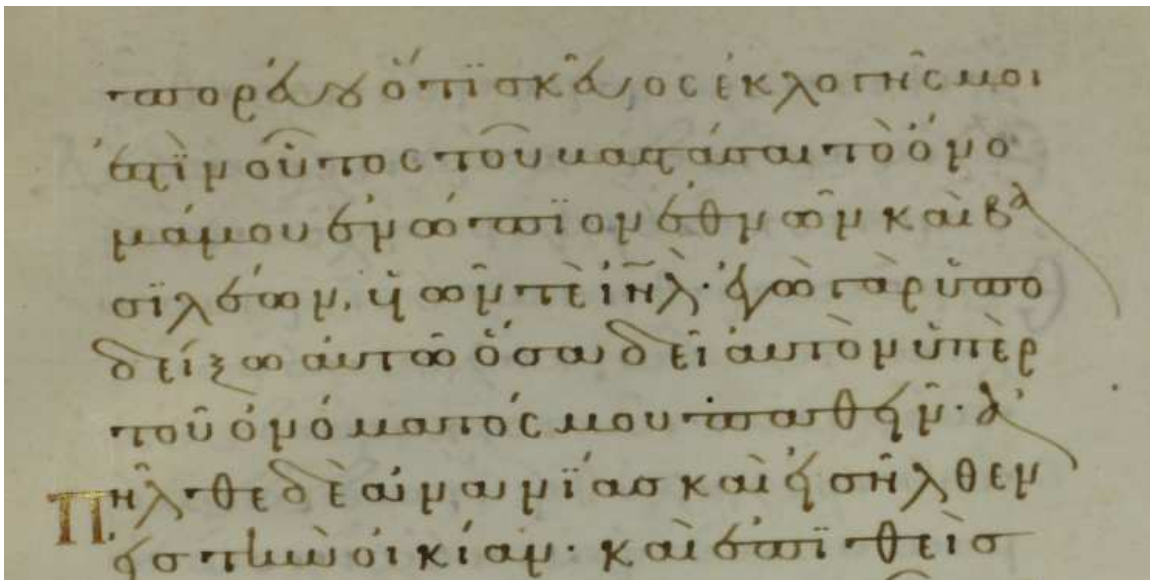 πορεύου ὅτϊ σκεῦος ἐκλογῆς μοι
ἐστὶν οὗτος τοῦ βαστάσαι τὸ ὄνο
μά μου ἐνώπϊον ἐθνῶν καὶ βα
σϊλέων, υἱῶν τὲ ἰηλ· ἐγὼ γὰρ ὑπο
δείξω αὐτῶ ὅσα δεῖ αὐτὸν ὑπὲρ
τοῦ ὀνόματός μου παθεῖν· ἀ
Πῆλθε δὲ ἀνανΐας καὶ εἰσῆλθεν
εἰς τὴν οἰκίαν· καὶ ἐπϊθεὶς